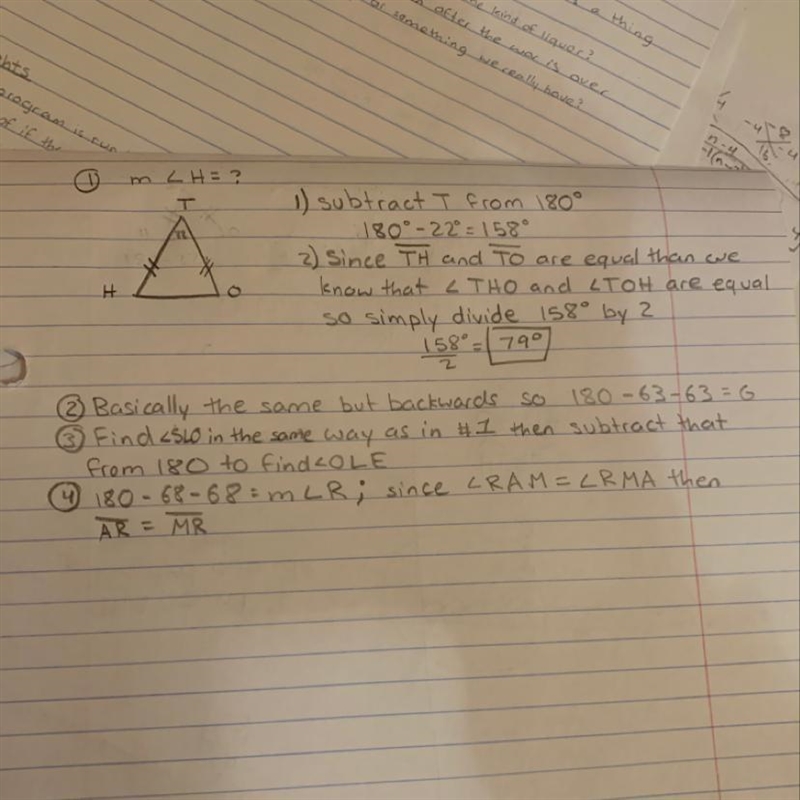 kind of liquor? a thing
after the war is over
or something we really have?
program is run
of if the
-4 8
16 -4
① m ∠H = ?
T
H O
1) subtract T from 180°
180° - 22° = 158°
2) Since TH and TO are equal than we
know that ∠THO and ∠TOH are equal
so simply divide 158° by 2
158°/2 = 79°
② Basically the same but backwards so 180 - 63 - 63 = G
③ Find ∠SLO in the same way as in #1 then subtract that
from 180 to find ∠OLE
④ 180 - 68 - 68 = m∠R; since ∠RAM = ∠RMA then
AR = MR